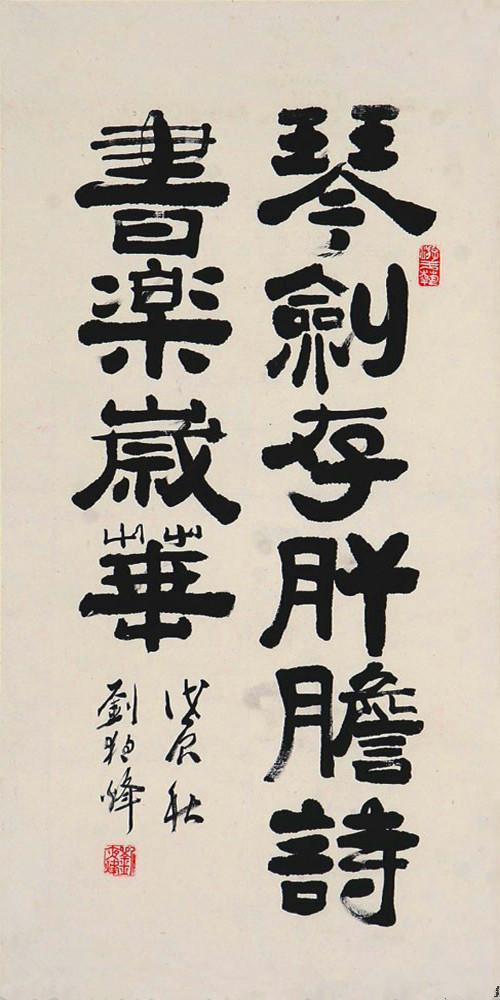 琴劍存肝膽詩
書楽歲華
戊辰秋
劉炳森